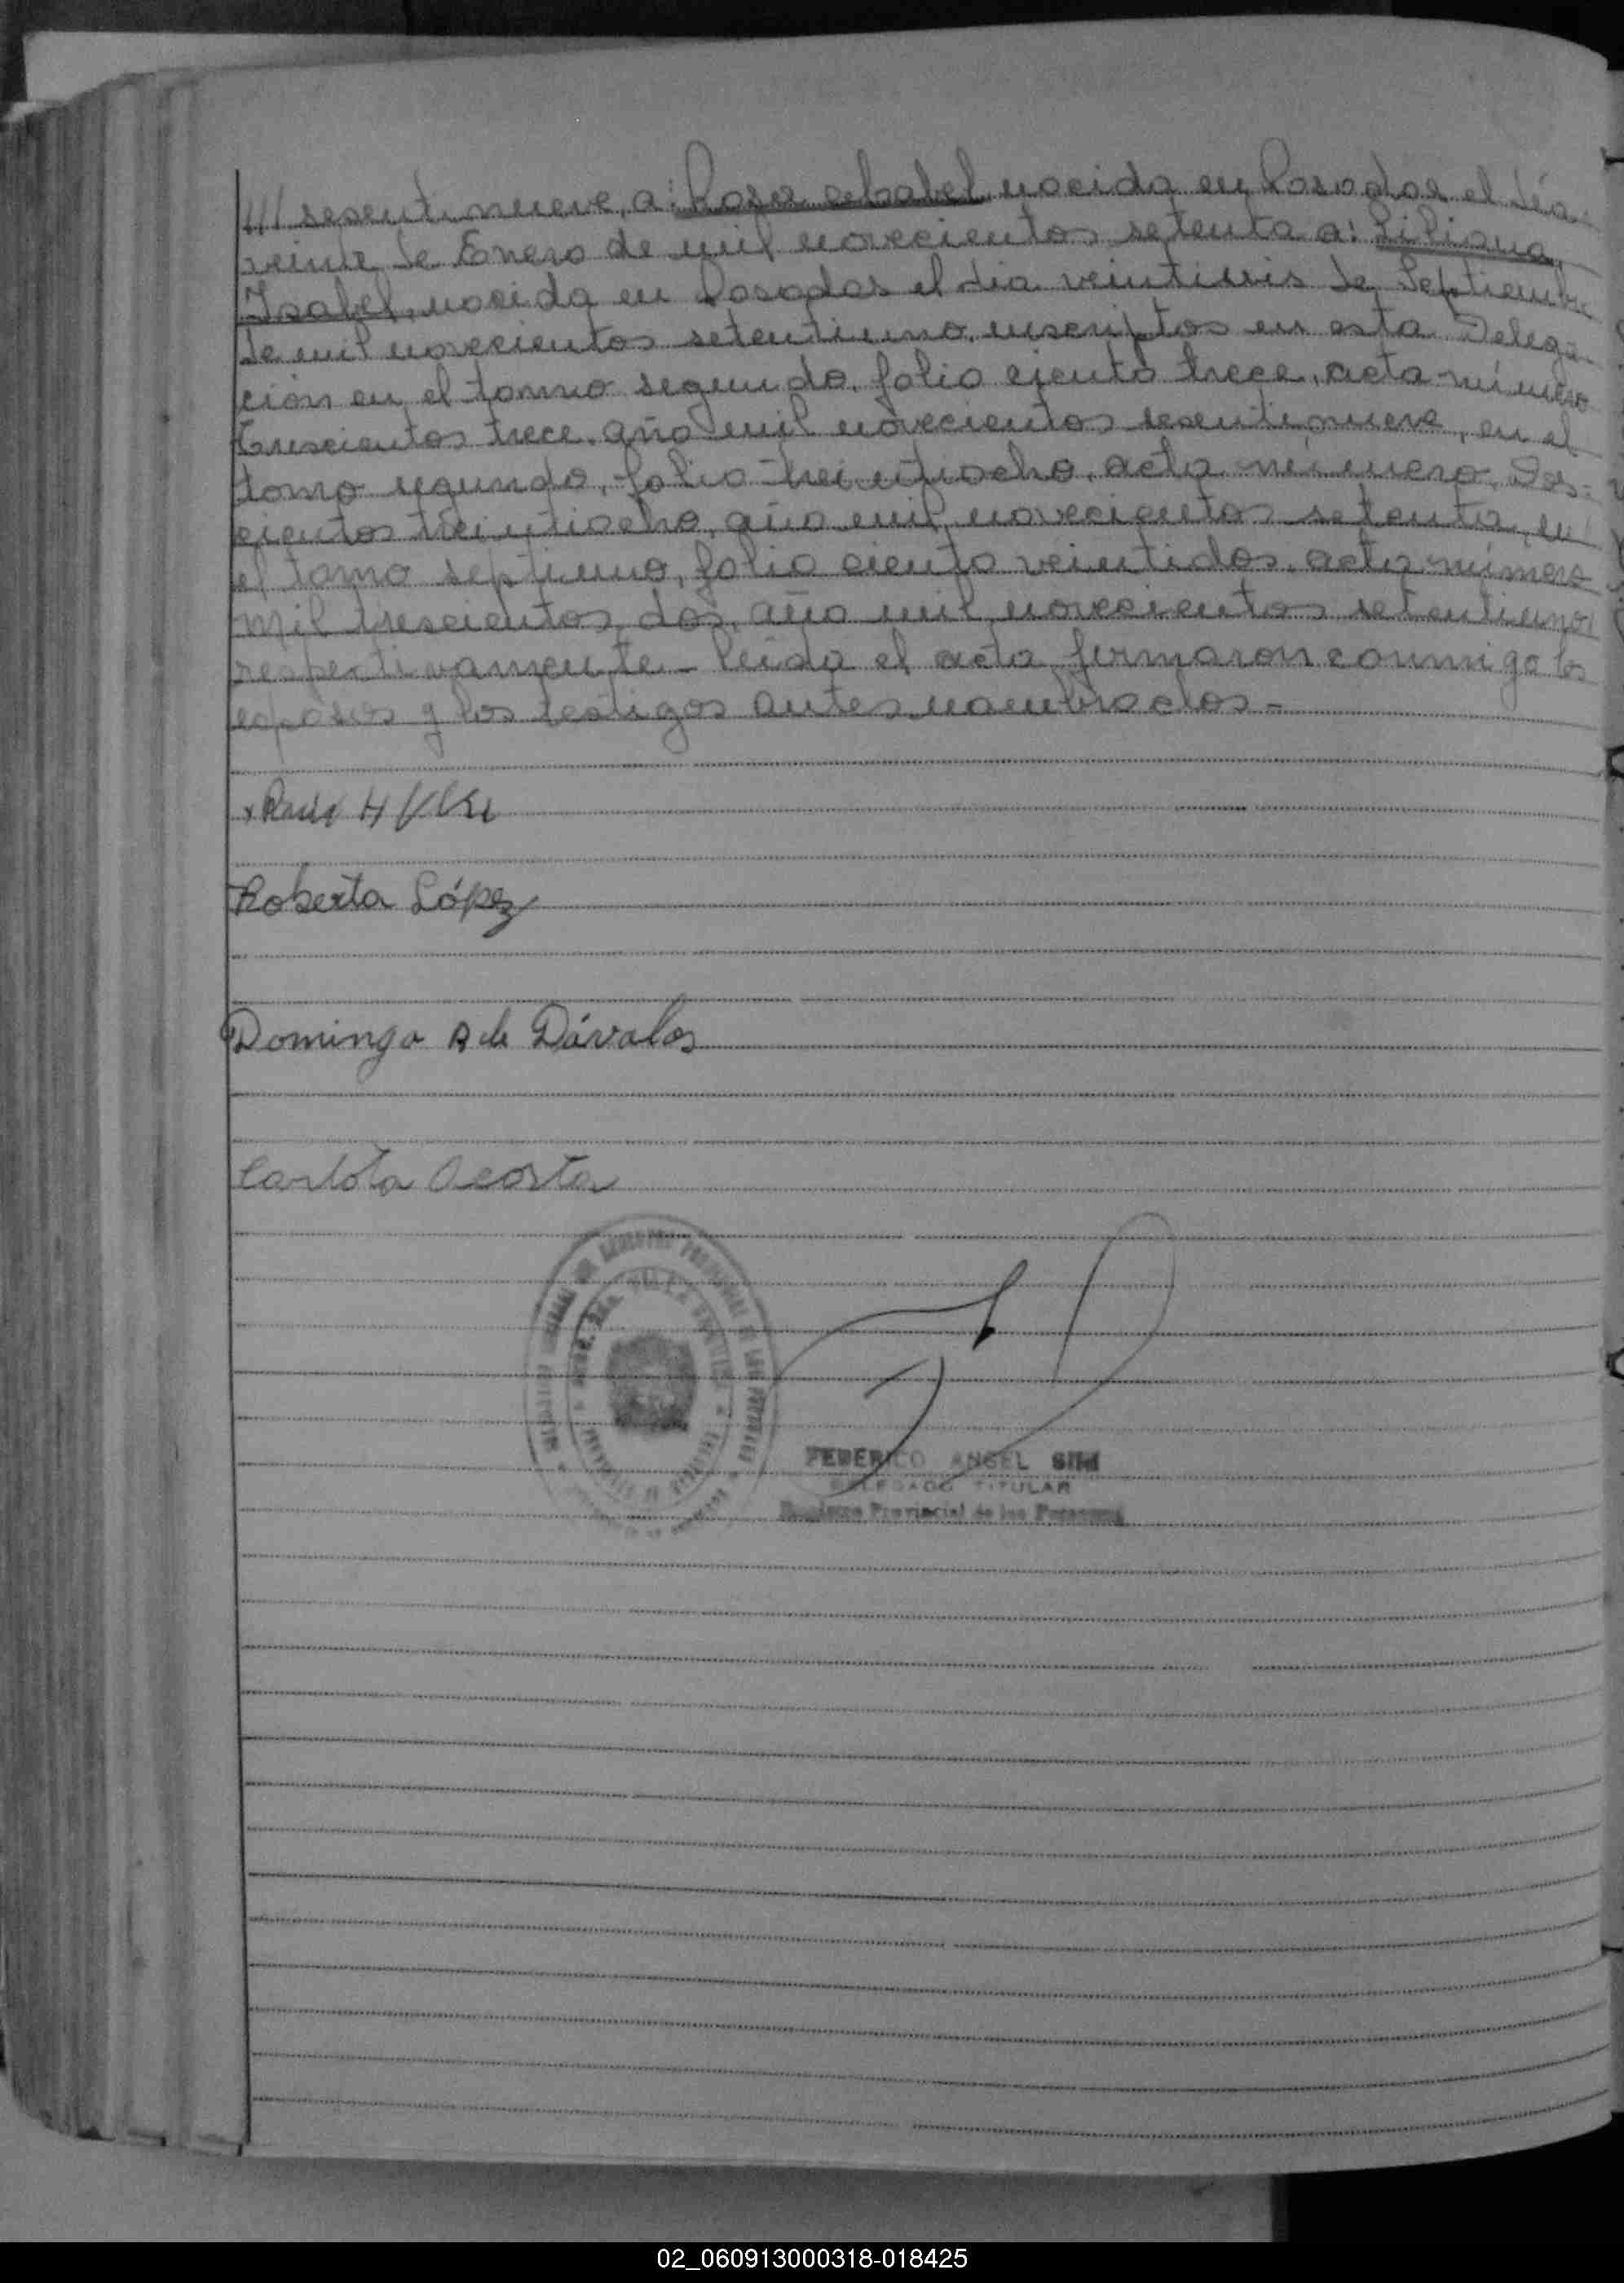 /// sesentinueve, a: Rosa Isabel nacida en Posadas el día
veinte de Enero de mil novecientos setenta a: Liliana
Isabel, nacida en Posadas el dia veintiseis de Septiembre
de mil novecientos setentiuno, inscriptos en esta Delega-
ción en el tomo segundo, folio ciento trece, acta número
trescientos trece, año mil novecientos sesentinueve, en el
tomo segundo, folio treintiocho, acta número Dos-
cientos treintiocho, año mil novecientos setenta, en
el tomo septimo, folio ciento veintidos, acta número
mil trescientos dos, año mil novecientos setentiuno,
respectivamente - leida el acta, firmaron conmigo los
esposos y los testigos antes nombrados -
Roberta López
Dominga B de Dávalos
Carlota Acosta
FEDERICO ANGEL
DELEGADO TITULAR
Registro Provincial de las Personas
02_060913000318-018425